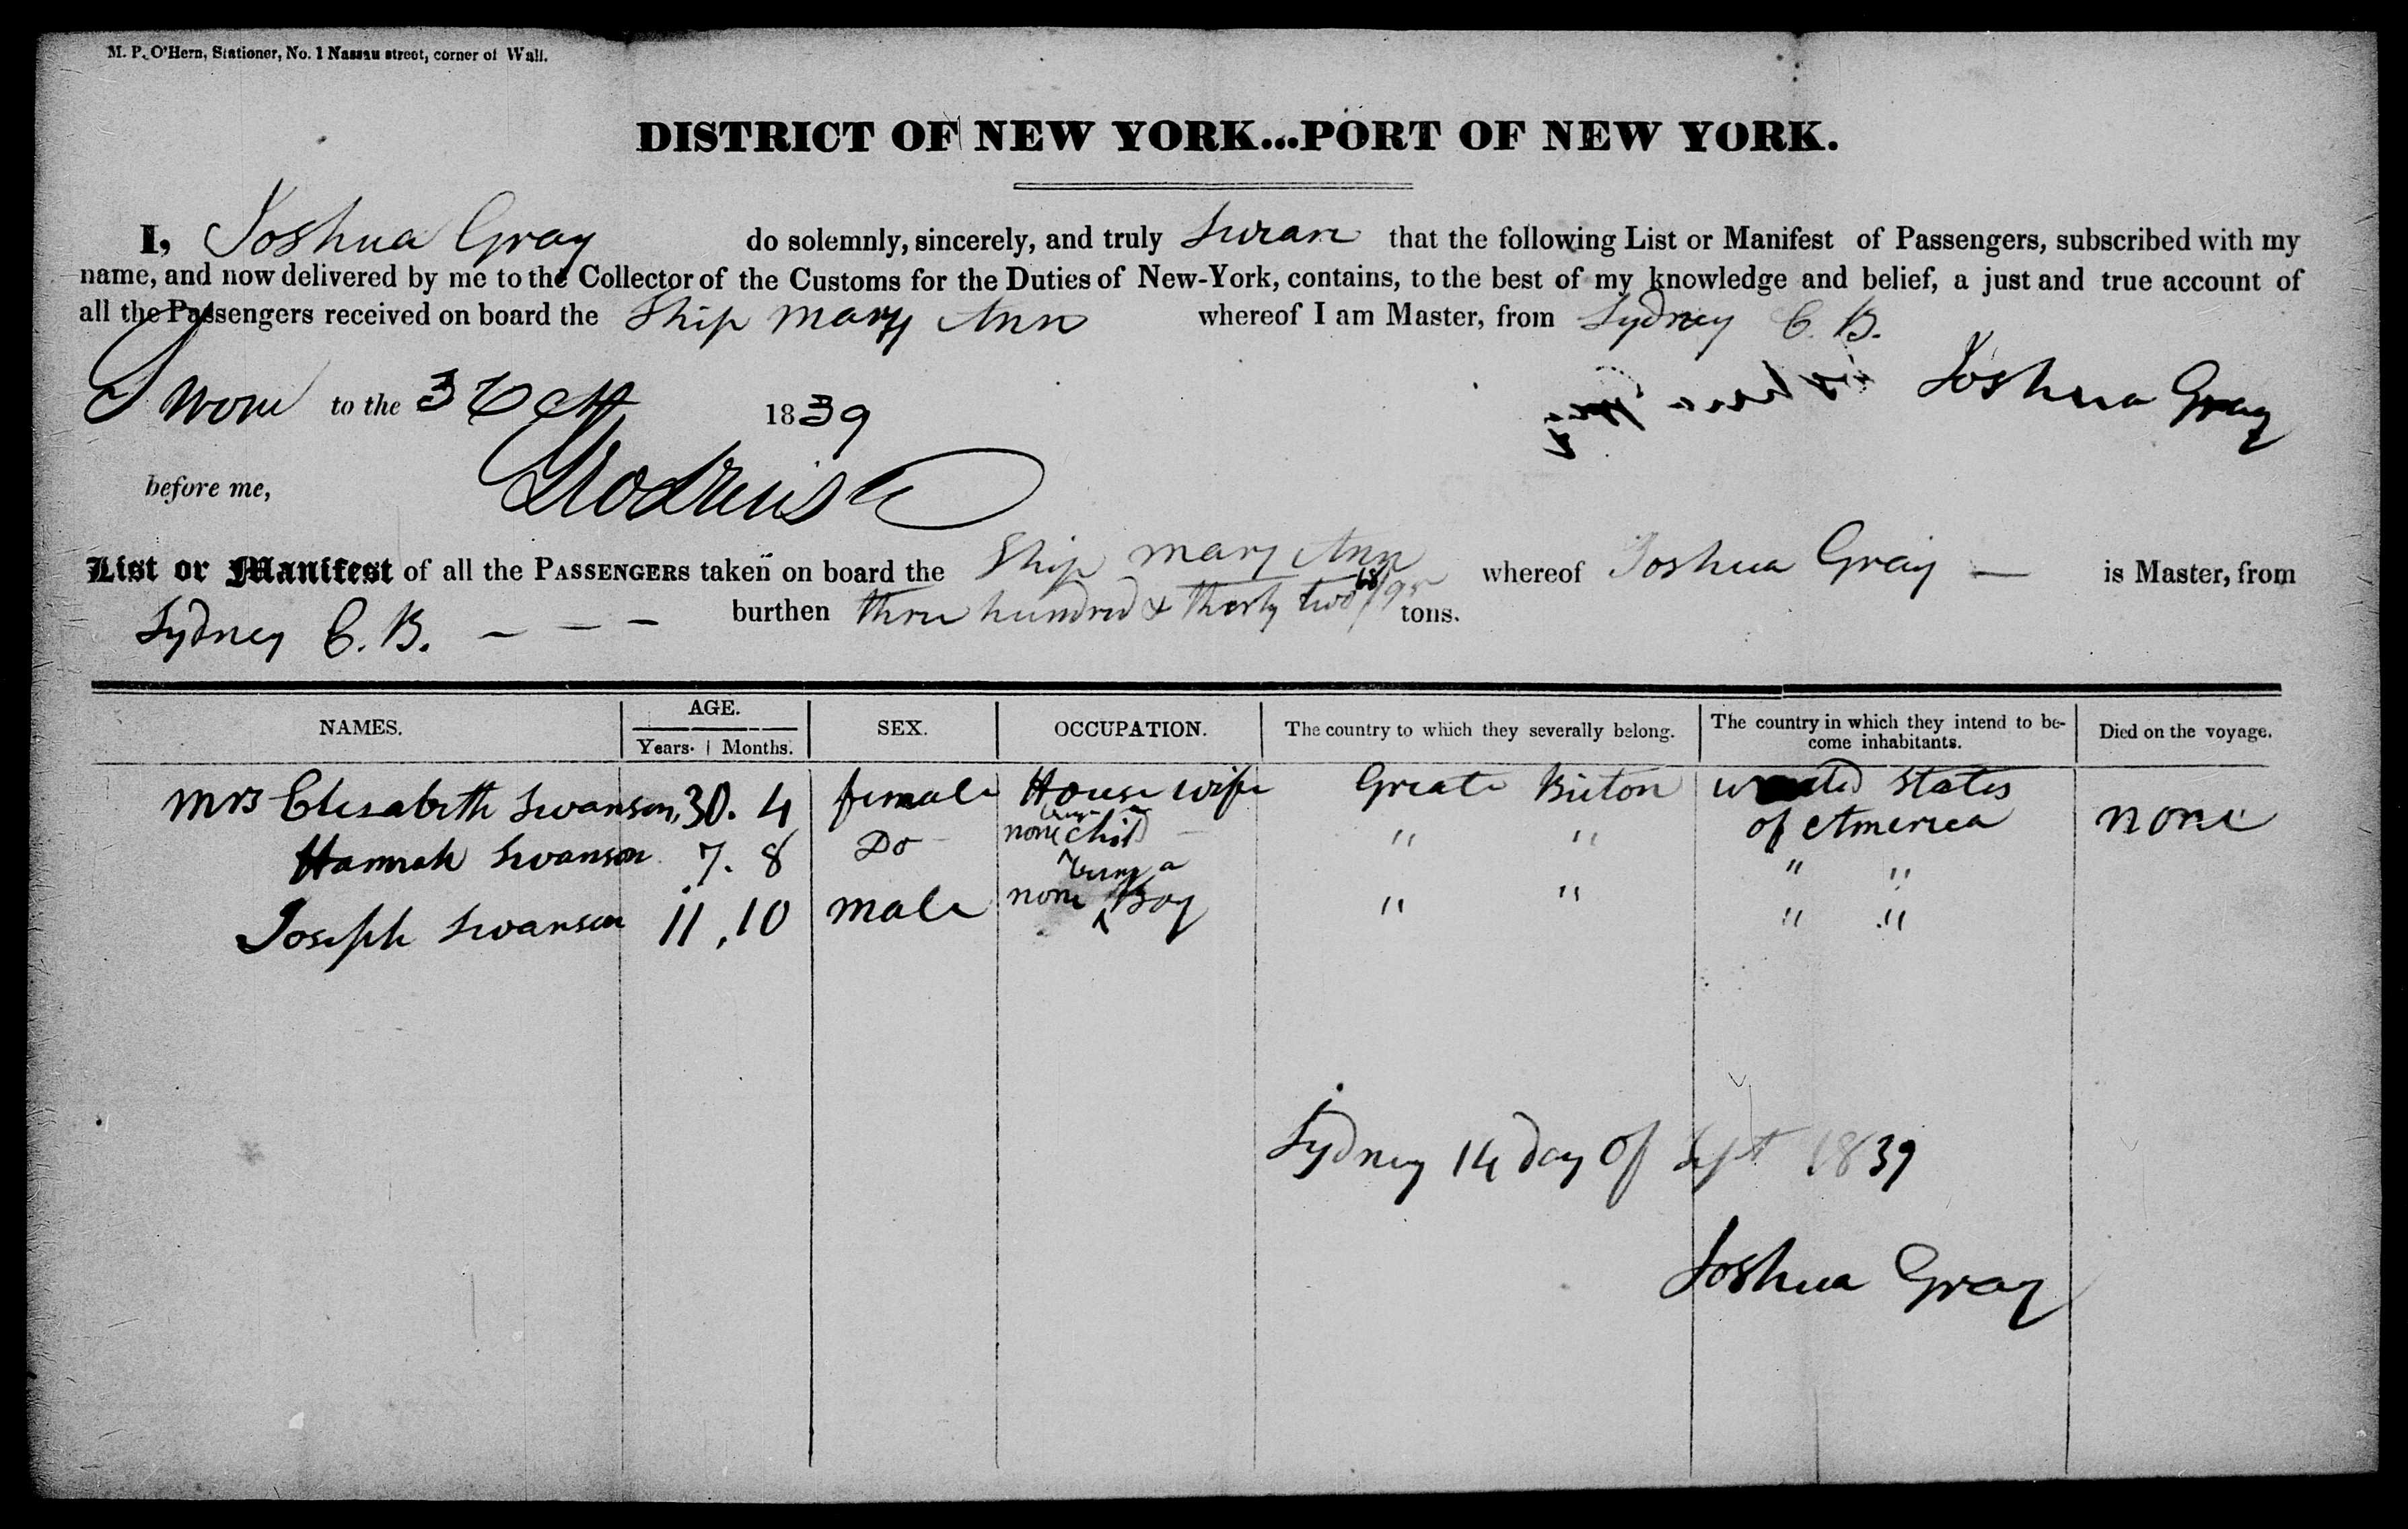 M. P. O'Hern, Stationer, No. 1 Nassau street, corner of Wall.
DISTRICT OF NEW YORK...PORT OF NEW YORK.
I, Joshua Gray do solemnly, sincerely, and truly Swear that the following List or Manifest of Passengers, subscribed with my
name, and now delivered by me to the Collector of the Customs for the Duties of New-York, contains, to the best of my knowledge and belief, a just and true account of
all the Passengers received on board the Ship Mary Ann whereof I am Master, from Sydney C. B.
Sworn to the 3 Oct 1839 Joshua Gray
before me,
List or Manifest of all the PASSENGERS taken on board the Ship Mary Ann whereof Joshua Gray — is Master, from
Sydney C. B. — — — burthen three hundred & thirty two 68/95 tons.
NAMES. AGE. Years. Months. SEX. OCCUPATION. The country to which they severally belong. The country in which they intend to be-come inhabitants. Died on the voyage.
Mrs Elisabeth Swanson, 30. 4 female House wife Greate Briton united States
of America none
Hannah Swanson 7. 8 Do none being a Child " " " "
Joseph Swanson 11, 10 male none being a Boy " " " "
Sydney 14 day of Sept 1839
Joshua Gray